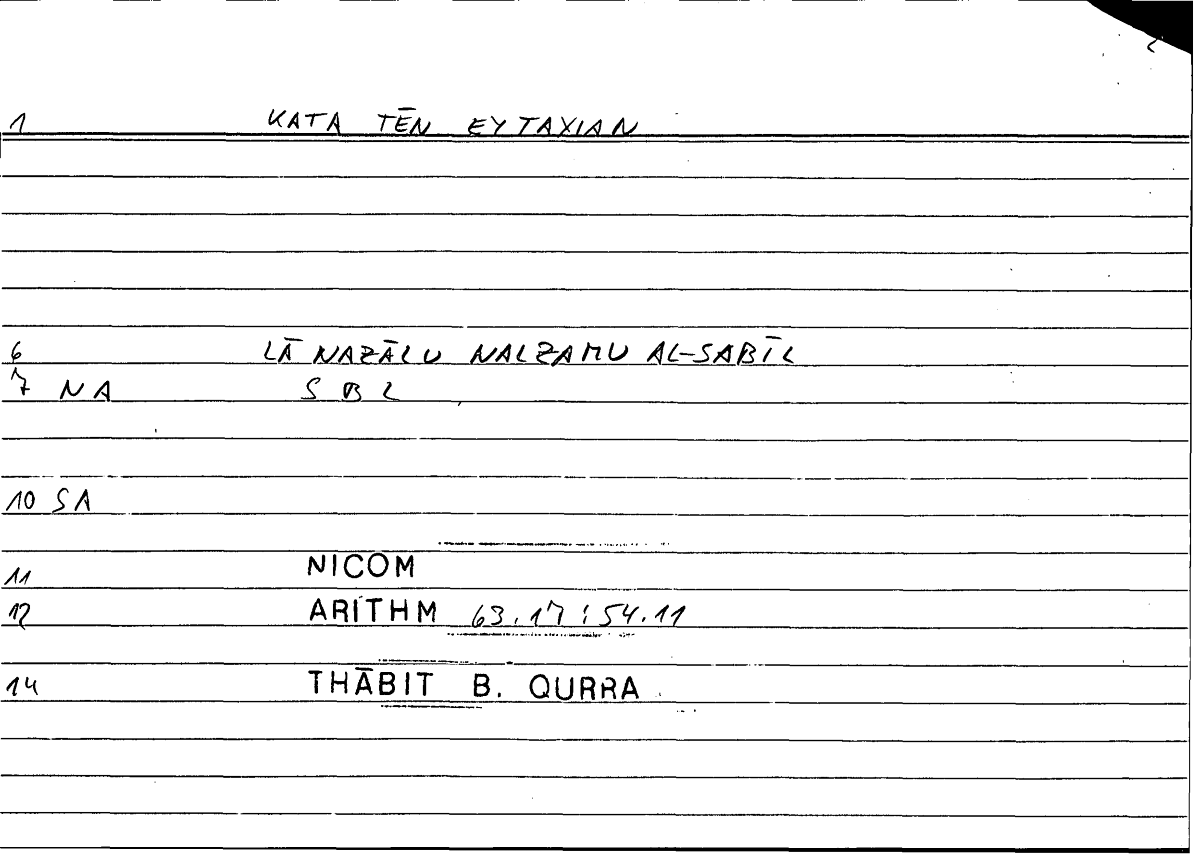 1 KATA TĒN EYTAXIAN
6 LĀ NAZĀLU NALZAMU AL-SABĪL
7 NA S B L
10 SA
11 NICOM
12 ARITHM 63.17 ; 54.11
14 THĀBIT B. QURRA